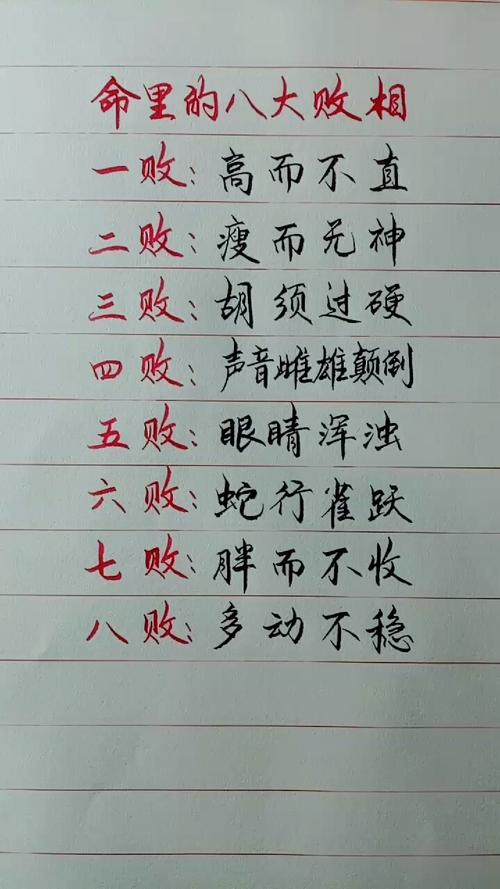 命里的八大败相
一败：高而不直
二败：瘦而无神
三败：胡须过硬
四败：声音雌雄颠倒
五败：眼睛浑浊
六败：蛇行雀跃
七败：胖而不收
八败：多动不稳